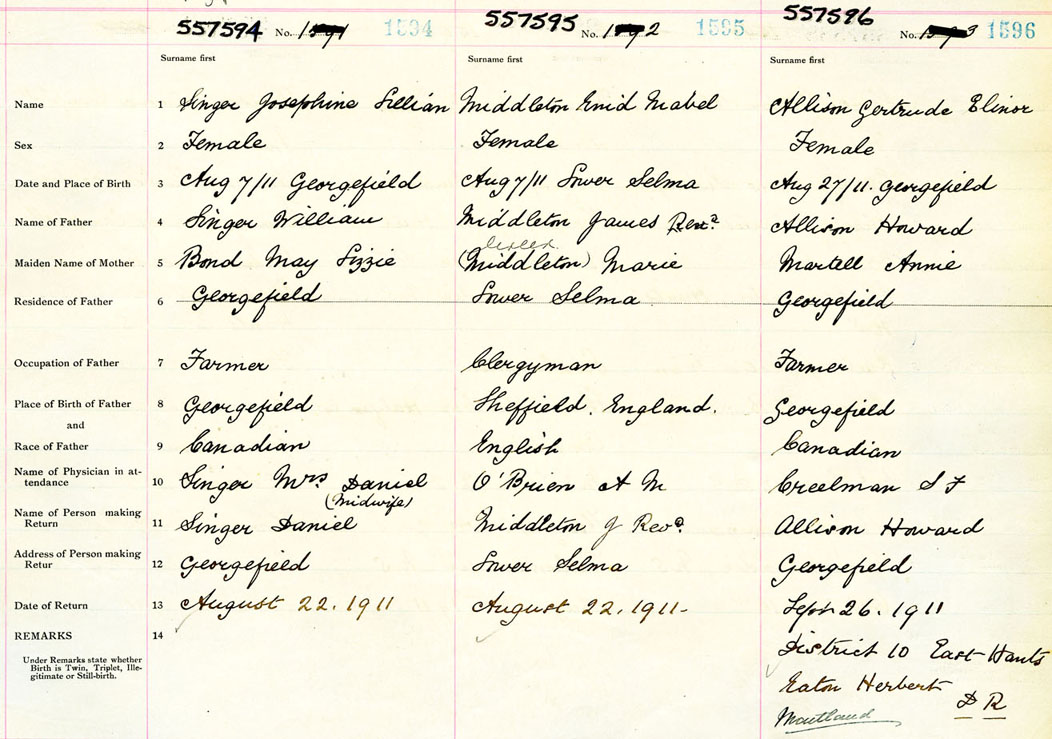 557594 No. 1594
557595 No. 1595
557596 No. 1596
Surname first Surname first Surname first
Name 1 Singer Josephine Lillian Middleton Enid Mabel Allison Gertrude Elinor
Sex 2 Female Female Female
Date and Place of Birth 3 Aug 7/11 Georgefield Aug 7/11 Lower Selma Aug 27/11. Georgefield
Name of Father 4 Singer William Middleton James Revd. Allison Howard
Maiden Name of Mother 5 Bond May Lizzie (Middleton) Marie Martell Annie
Residence of Father 6 Georgefield Lower Selma Georgefield
Occupation of Father 7 Farmer Clergyman Farmer
Place of Birth of Father 8 Georgefield Sheffield. England. Georgefield
and
Race of Father 9 Canadian English Canadian
Name of Physician in at-
tendance 10 Singer Mrs. Daniel O'Brien A M Creelman S F
(Midwife)
Name of Person making
Return 11 Singer Daniel Middleton J Revd. Allison Howard
Address of Person making
Retur 12 Georgefield Lower Selma Georgefield
Date of Return 13 August 22. 1911 August 22. 1911- Sept 26. 1911
REMARKS 14
District 10 East Hants
Under Remarks state whether
Birth is Twin, Triplet, Ille-
gitimate or Still-birth.
Eaton Herbert D R
Maitland